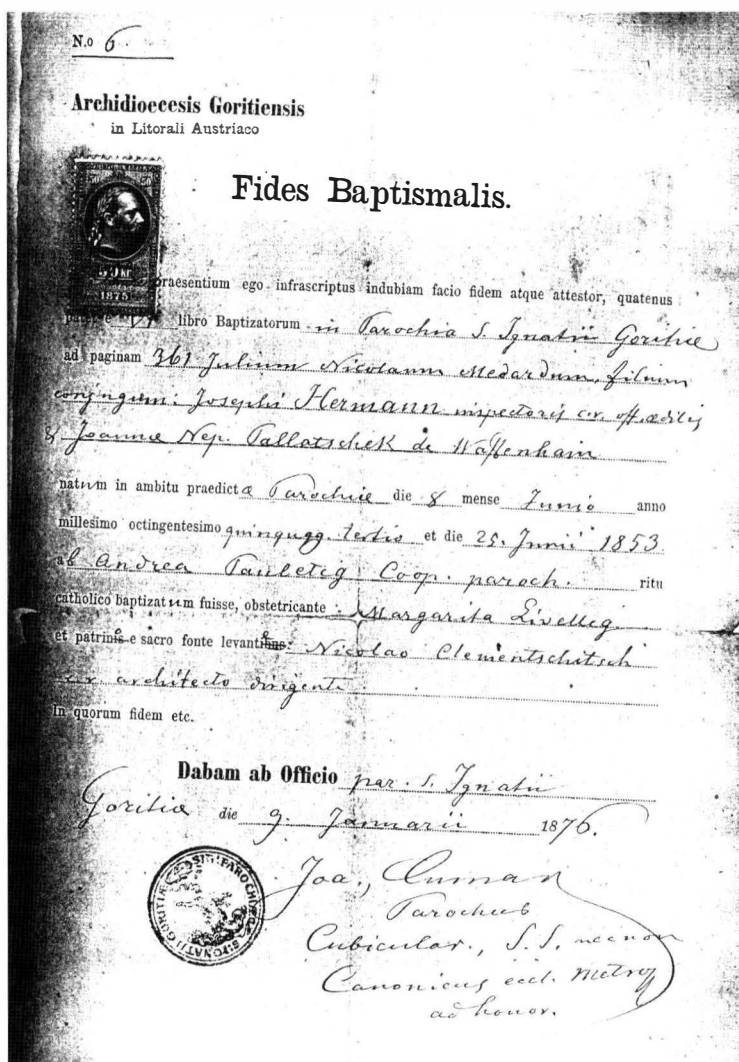 N.o 6.
Archidioecesis Goritiensis
in Litorali Austriaco
50 50
50 Kr
1875
Fides Baptismalis.
praesentium ego infrascriptus indubiam facio fidem atque attestor, quatenus
libro Baptizatorum in Parochia S. Ignatii Goritiae
ad paginam 361 Julium Nicolaum Medardum, filium
conjugum: Josephi Hermann inspectoris off. aedilis
& Joannae Nep. Pallatschek de Waffenhain
natum in ambitu praedictae Parochiae die 8 mense Junio anno
millesimo octingentesimo quinquag. tertio et die 25. Junii 1853
ab Andrea Coop. paroch. ritu
catholico baptizatum fuisse, obstetricante: Margarita
et patrino e sacro fonte levante: Nicolao Clementschitsch
architecto dirigente
In quorum fidem etc.
Dabam ab Officio par. S. Ignatii
Goritiae die 9. Januarii 1876.
SIG. PAROCHI S. IGNATII GORITIAE
Joa.
Parochus
Cubicular., S. S. necnon
Canonicus eccl. Metrop
ad honor.